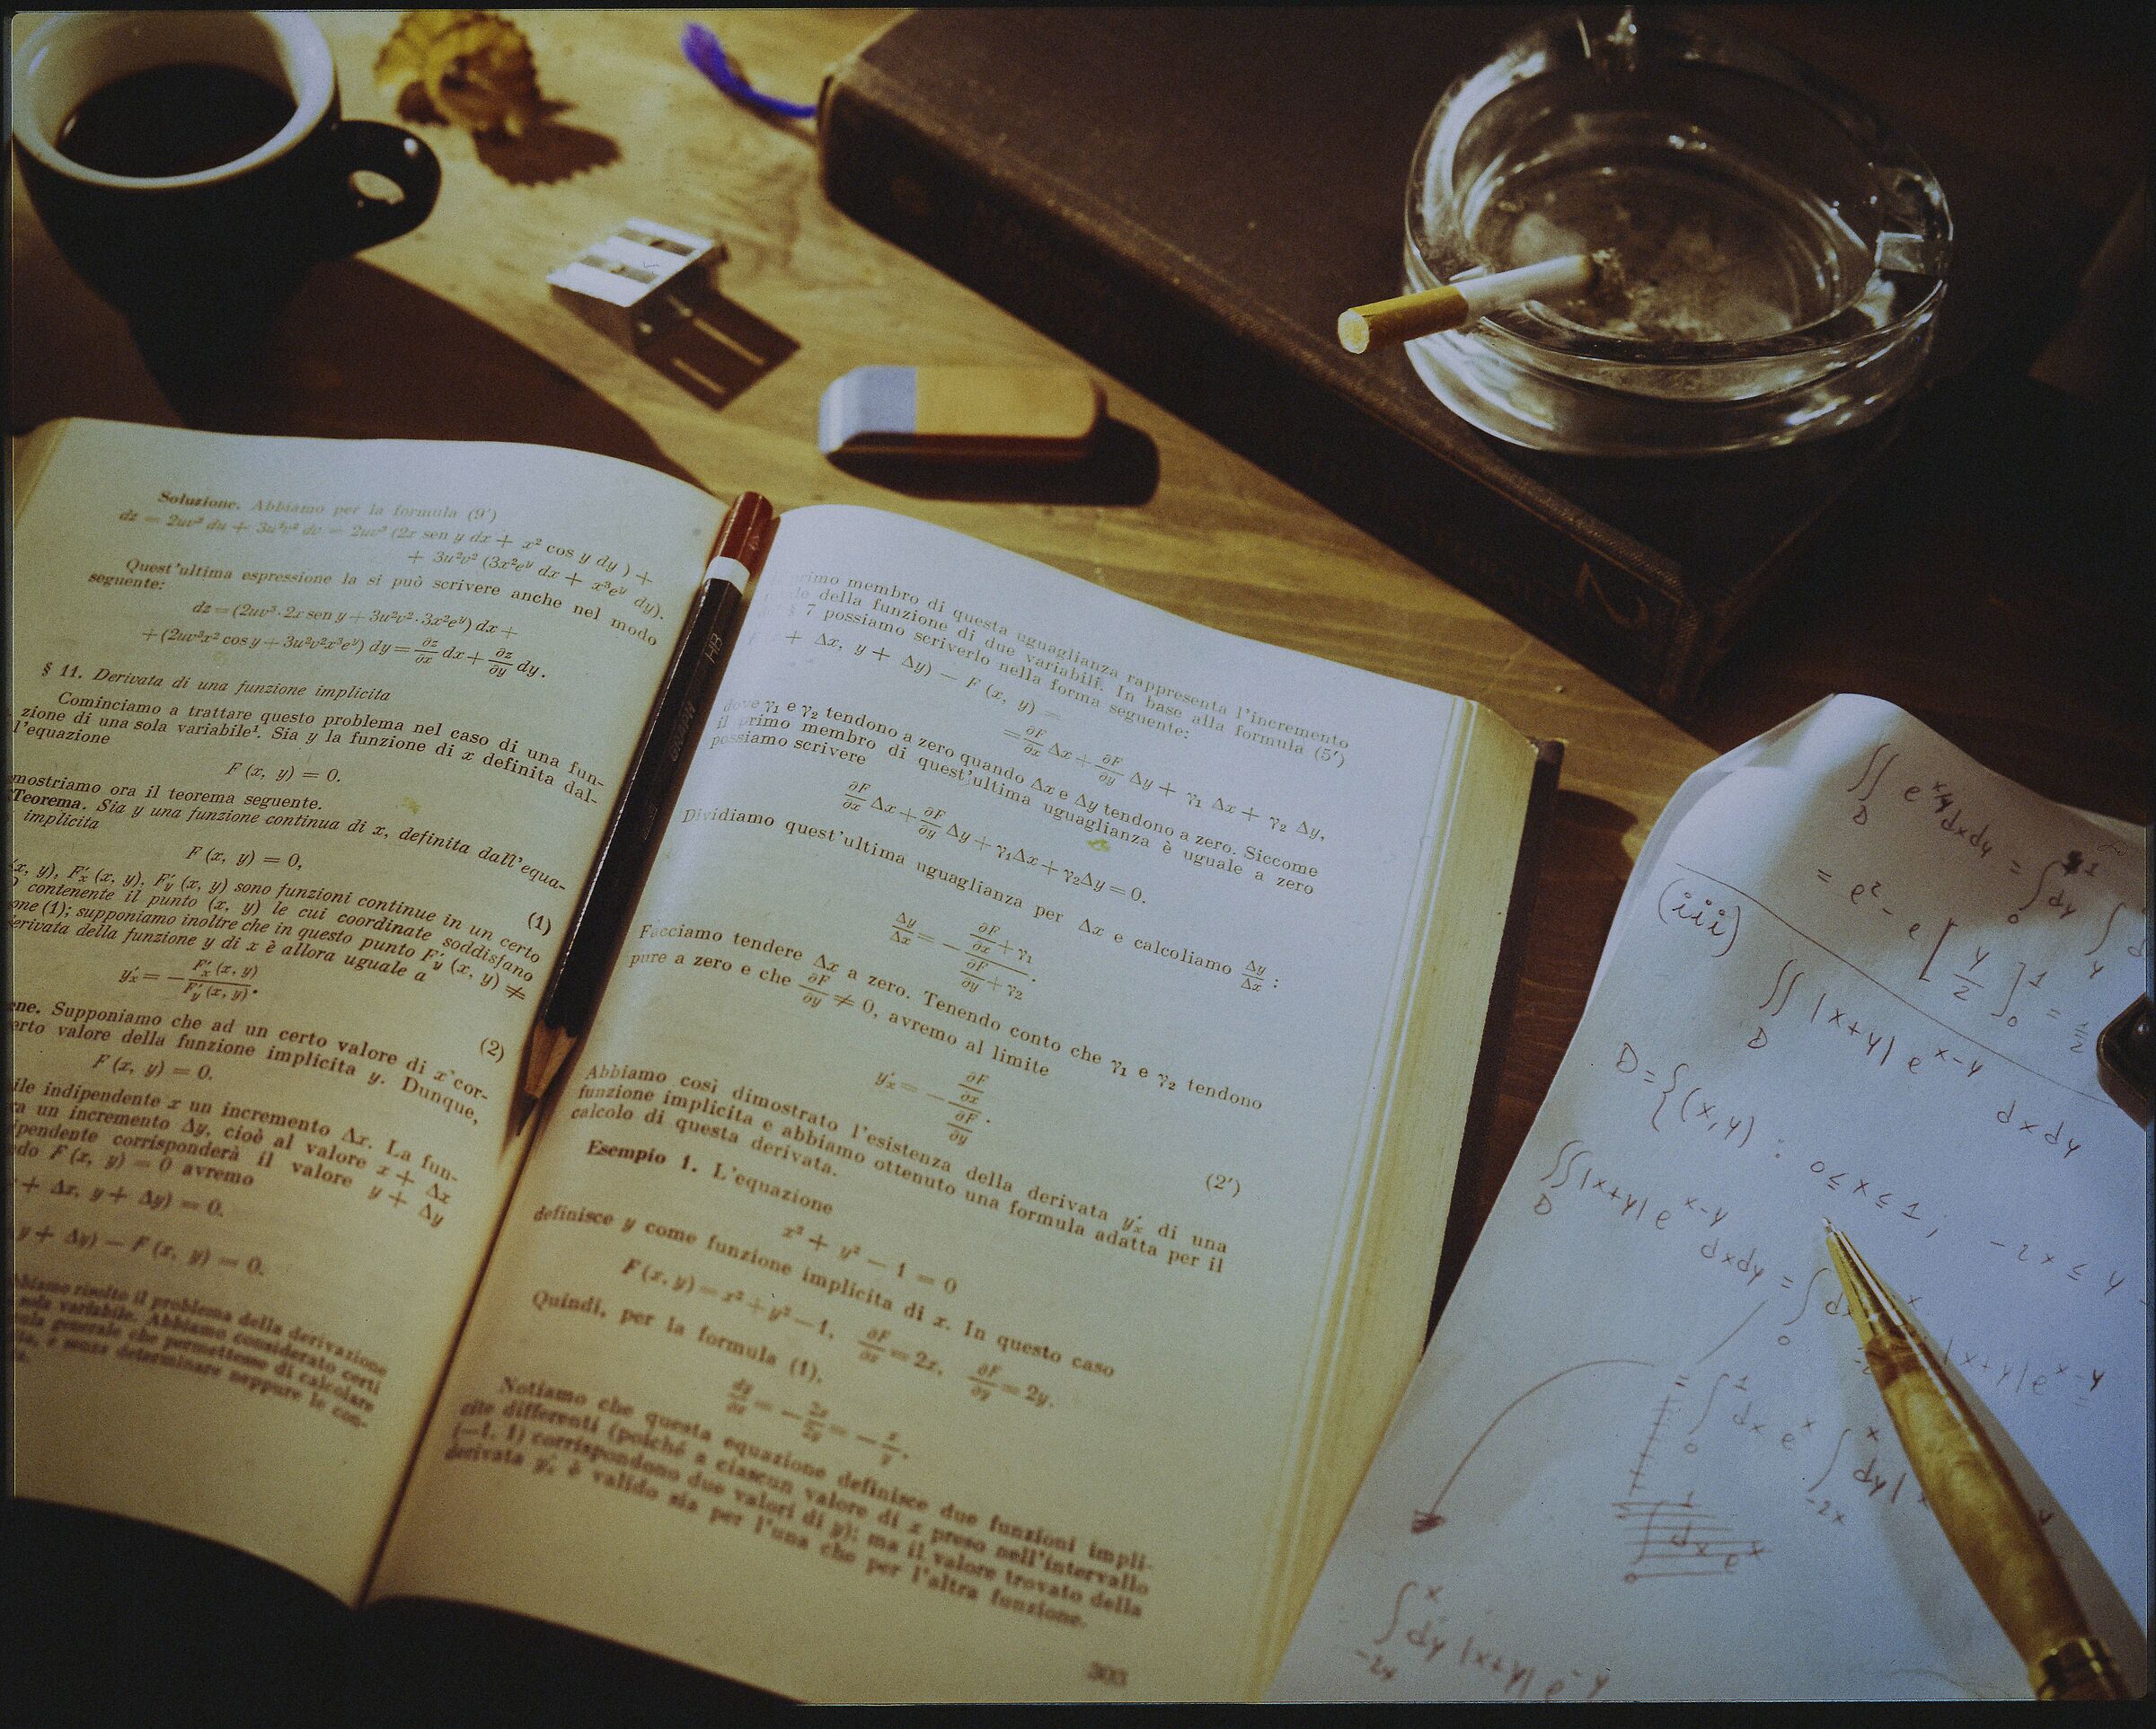 Soluzione. Abbiamo per la formula (9′)
dz = 2uv³ du + 3u²v² dv = 2uv³ (2x sen y dx + x² cos y dy) +
+ 3u²v² (3x²eʸ dx + x³eʸ dy).
Quest'ultima espressione la si può scrivere anche nel modo
seguente:
dz = (2uv³·2x sen y + 3u²v²·3x²eʸ) dx +
+ (2uv³x² cos y + 3u²v²x³eʸ) dy = ∂z/∂x dx + ∂z/∂y dy.
§ 11. Derivata di una funzione implicita
Cominciamo a trattare questo problema nel caso di una fun-
zione di una sola variabile¹. Sia y la funzione di x definita dal-
l'equazione
F (x, y) = 0.
mostriamo ora il teorema seguente.
Teorema. Sia y una funzione continua di x, definita dall'equa-
implicita
F (x, y) = 0, (1)
(x, y), F′ₓ (x, y), F′ᵧ (x, y) sono funzioni continue in un certo
contenente il punto (x, y) le cui coordinate soddisfano
one (1); supponiamo inoltre che in questo punto F′ᵧ (x, y) ≠
erivata della funzione y di x è allora uguale a
y′ₓ = − F′ₓ (x, y) / F′ᵧ (x, y). (2)
ne. Supponiamo che ad un certo valore di x cor-
erto valore della funzione implicita y. Dunque,
F (x, y) = 0.
ile indipendente x un incremento Δx. La fun-
un incremento Δy, cioè al valore x + Δx
ipendente corrisponderà il valore y + Δy
do F (x, y) = 0 avremo
+ Δx, y + Δy) = 0.
y + Δy) − F (x, y) = 0.
bbiamo risolto il problema della derivazione
sola variabile. Abbiamo considerato certi
ola generale che permettesse di calcolare
e senza determinare neppure le con-
HB
primo membro di questa uguaglianza rappresenta l'incremento
della funzione di due variabili. In base alla formula (5′)
§ 7 possiamo scriverlo nella forma seguente:
+ Δx, y + Δy) − F (x, y) =
= ∂F/∂x Δx + ∂F/∂y Δy + γ₁ Δx + γ₂ Δy,
dove γ₁ e γ₂ tendono a zero quando Δx e Δy tendono a zero. Siccome
il primo membro di quest'ultima uguaglianza è uguale a zero
possiamo scrivere
∂F/∂x Δx + ∂F/∂y Δy + γ₁Δx + γ₂Δy = 0.
Dividiamo quest'ultima uguaglianza per Δx e calcoliamo Δy/Δx :
Δy/Δx = − (∂F/∂x + γ₁) / (∂F/∂y + γ₂).
Facciamo tendere Δx a zero. Tenendo conto che γ₁ e γ₂ tendono
pure a zero e che ∂F/∂y ≠ 0, avremo al limite
y′ₓ = − (∂F/∂x) / (∂F/∂y). (2′)
Abbiamo così dimostrato l'esistenza della derivata y′ₓ di una
funzione implicita e abbiamo ottenuto una formula adatta per il
calcolo di questa derivata.
Esempio 1. L'equazione
x² + y² − 1 = 0
definisce y come funzione implicita di x. In questo caso
F (x, y) = x² + y² − 1, ∂F/∂x = 2x, ∂F/∂y = 2y.
Quindi, per la formula (1),
dy/dx = − 2x/2y = − x/y.
Notiamo che questa equazione definisce due funzioni impli-
cite differenti (poiché a ciascun valore di x preso nell'intervallo
(−1, 1) corrispondono due valori di y); ma il valore trovato della
derivata y′ₓ è valido sia per l'una che per l'altra funzione.
303
2
∬_D e^{x/y} dxdy = ∫₀¹ dy ∫_y
= e² − e [y/2]₀¹ =
(iii)
∬_D |x+y| e^{x−y} dxdy
D = {(x,y) : 0 ≤ x ≤ 1; −2x ≤ y
∬_D |x+y| e^{x−y} dxdy = ∫₀ dx |x+y| e^{x−y}
= ∫₀¹ dx eˣ ∫_{−2x}^{x} dy |
∫₀¹ dx eˣ
∫_{−2x}^{x} dy |x+y| e^{−y}